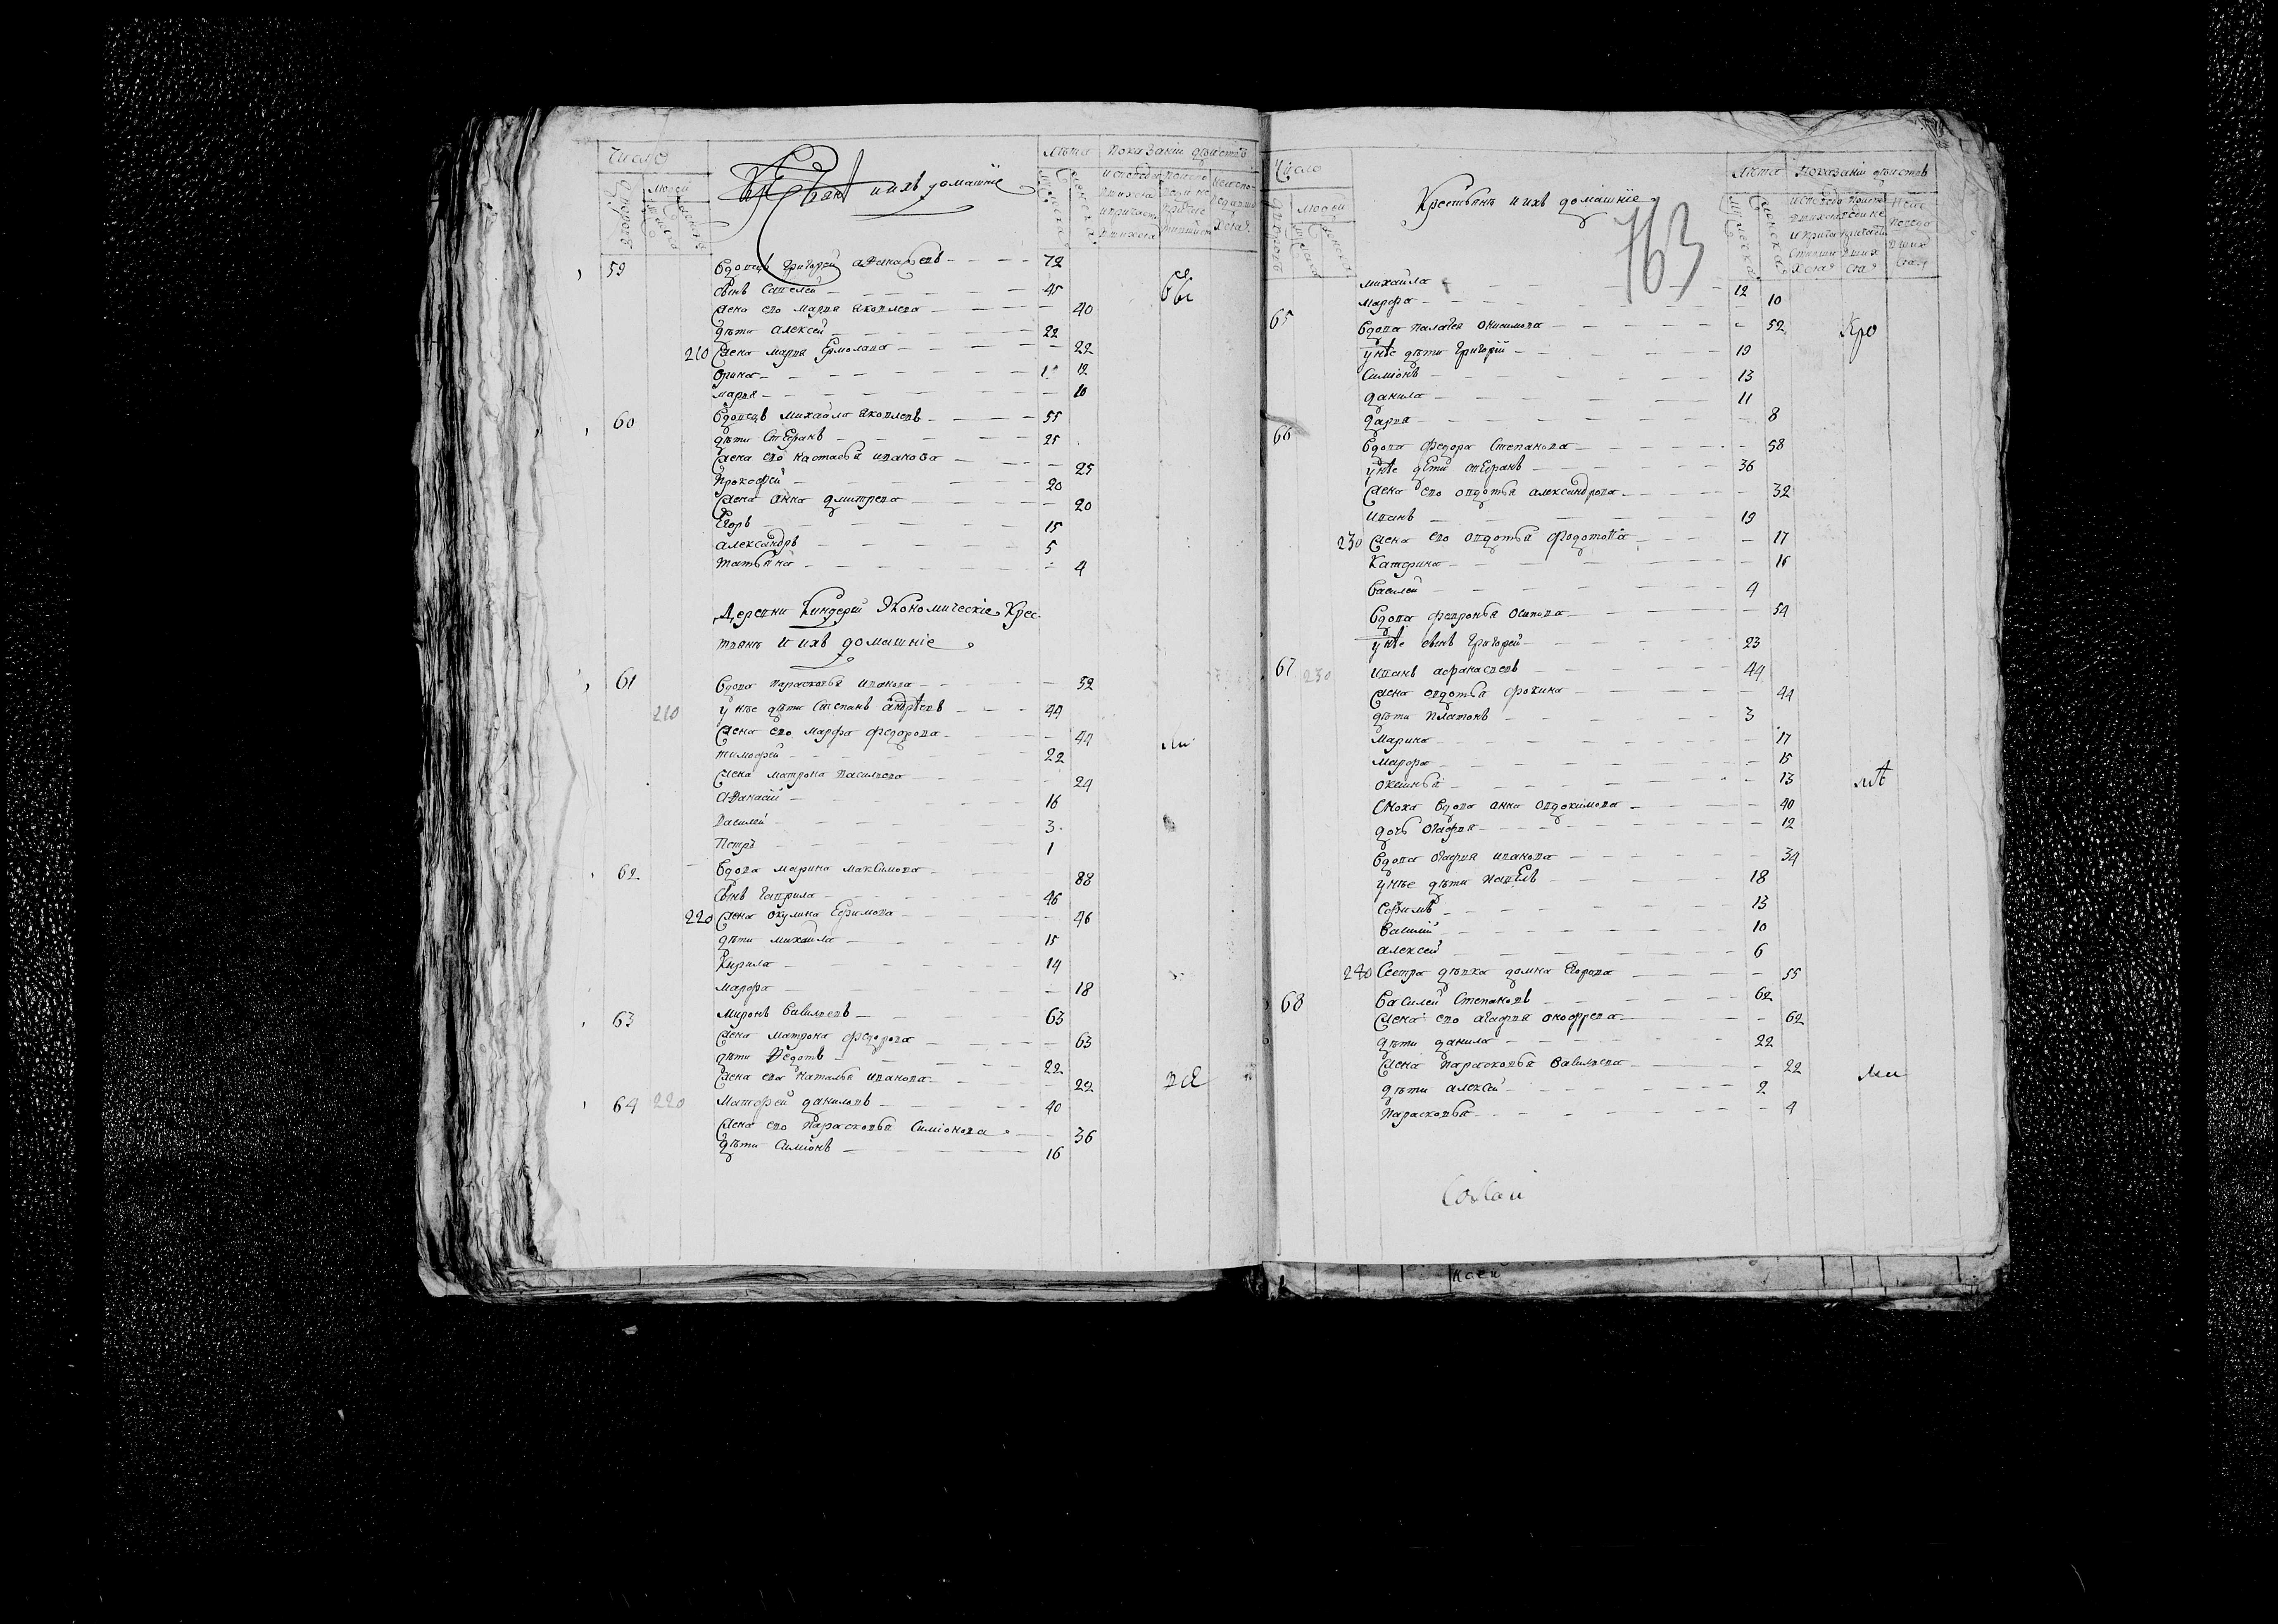 Число
Лѣта Показаніи дѣйствъ
Дворовъ
Людей
мужеска
женска
Крестьянѣ и ихъ домашніе
мужеска
женска
59 вдовецъ Григорей аѳанасьевъ 72
сынъ Савелей 45
бы
жена ево марья яковлева 40
дѣти алексей 22
210 жена марья Ермолава 22
орина 12
марья 10
60 вдовецъ михайла яковлевъ 55
дѣти стефанъ 25
жена ево настасья иванова 25
Прокофей 20
жена анна дмитрева 20
Егоръ 15
александръ 5
татьяна 4
Деревни Киндерей Экономическіе Крес
тьянѣ и ихъ домашніе
61 вдова парасковья иванова 52
210 у нѣе дѣти Степанъ андрѣевъ 44
жена ево марфа федорова 44
ли
тимофей 22
жена матрона васильева 24
аѳанасій 16
василей 3
Петръ 1
62 вдова марина максимова 88
сынъ гаврила 46
220 жена окулина Ефимова 46
дѣти михайла 15
Кирила 14
марфа 18
63 миронъ васильевъ 63
жена матрона федорова 63
дѣти Ѳедотъ 22
жена ево наталья иванова 22
все
64 220 Матфей даниловъ 40
жена ево Парасковья Симіонова 36
дѣти Симіонъ 16
Число
Лѣта Показаніи дѣйствъ
Людей
Крестьянѣ и ихъ домашніе
763
михайла 12
марфа 10
65 вдова палагея онисимова 52
Кро
у нѣе дѣти Григорій 19
Симіонъ 13
данила 11
дарья 8
66 вдова федора Степанова 58
у нѣе дѣти стефанъ 36
жена ево овдотья александрова 32
иванъ 19
230 жена ево овдотья федотова 17
Катерина 16
василей 4
вдова февронья осипова 54
у нѣе сынъ Григорей 23
67 230 иванъ афанасьевъ 44
жена евдотья фокина 44
дѣти платонъ 3
марина 17
марфа 15
оксинья 13
лѣ
сноха вдова анна овдокимова 40
дочь огафья 12
вдова огафья иванова 34
у нѣе дѣти павелъ 18
ефимъ 13
василій 10
алексей 6
240 Сестра дѣвка домна Егорова 55
68 василей Степановъ 62
жена ево агафья онофрева 62
дѣти данила 22
жена парасковья васильева 22
ли
дѣти алексей 2
парасковья 4